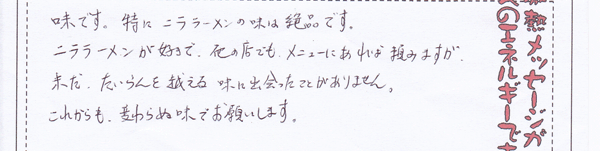 味です。特に ニララーメンの味は絶品です。
ニララーメンが好きで、他の店でも、メニューにあれば頼みますが、
未だ、たいらんを越える 味に出会ったことがありません。
これからも、変わらぬ味でお願いします。
熱メッセージが
のエネルギーで